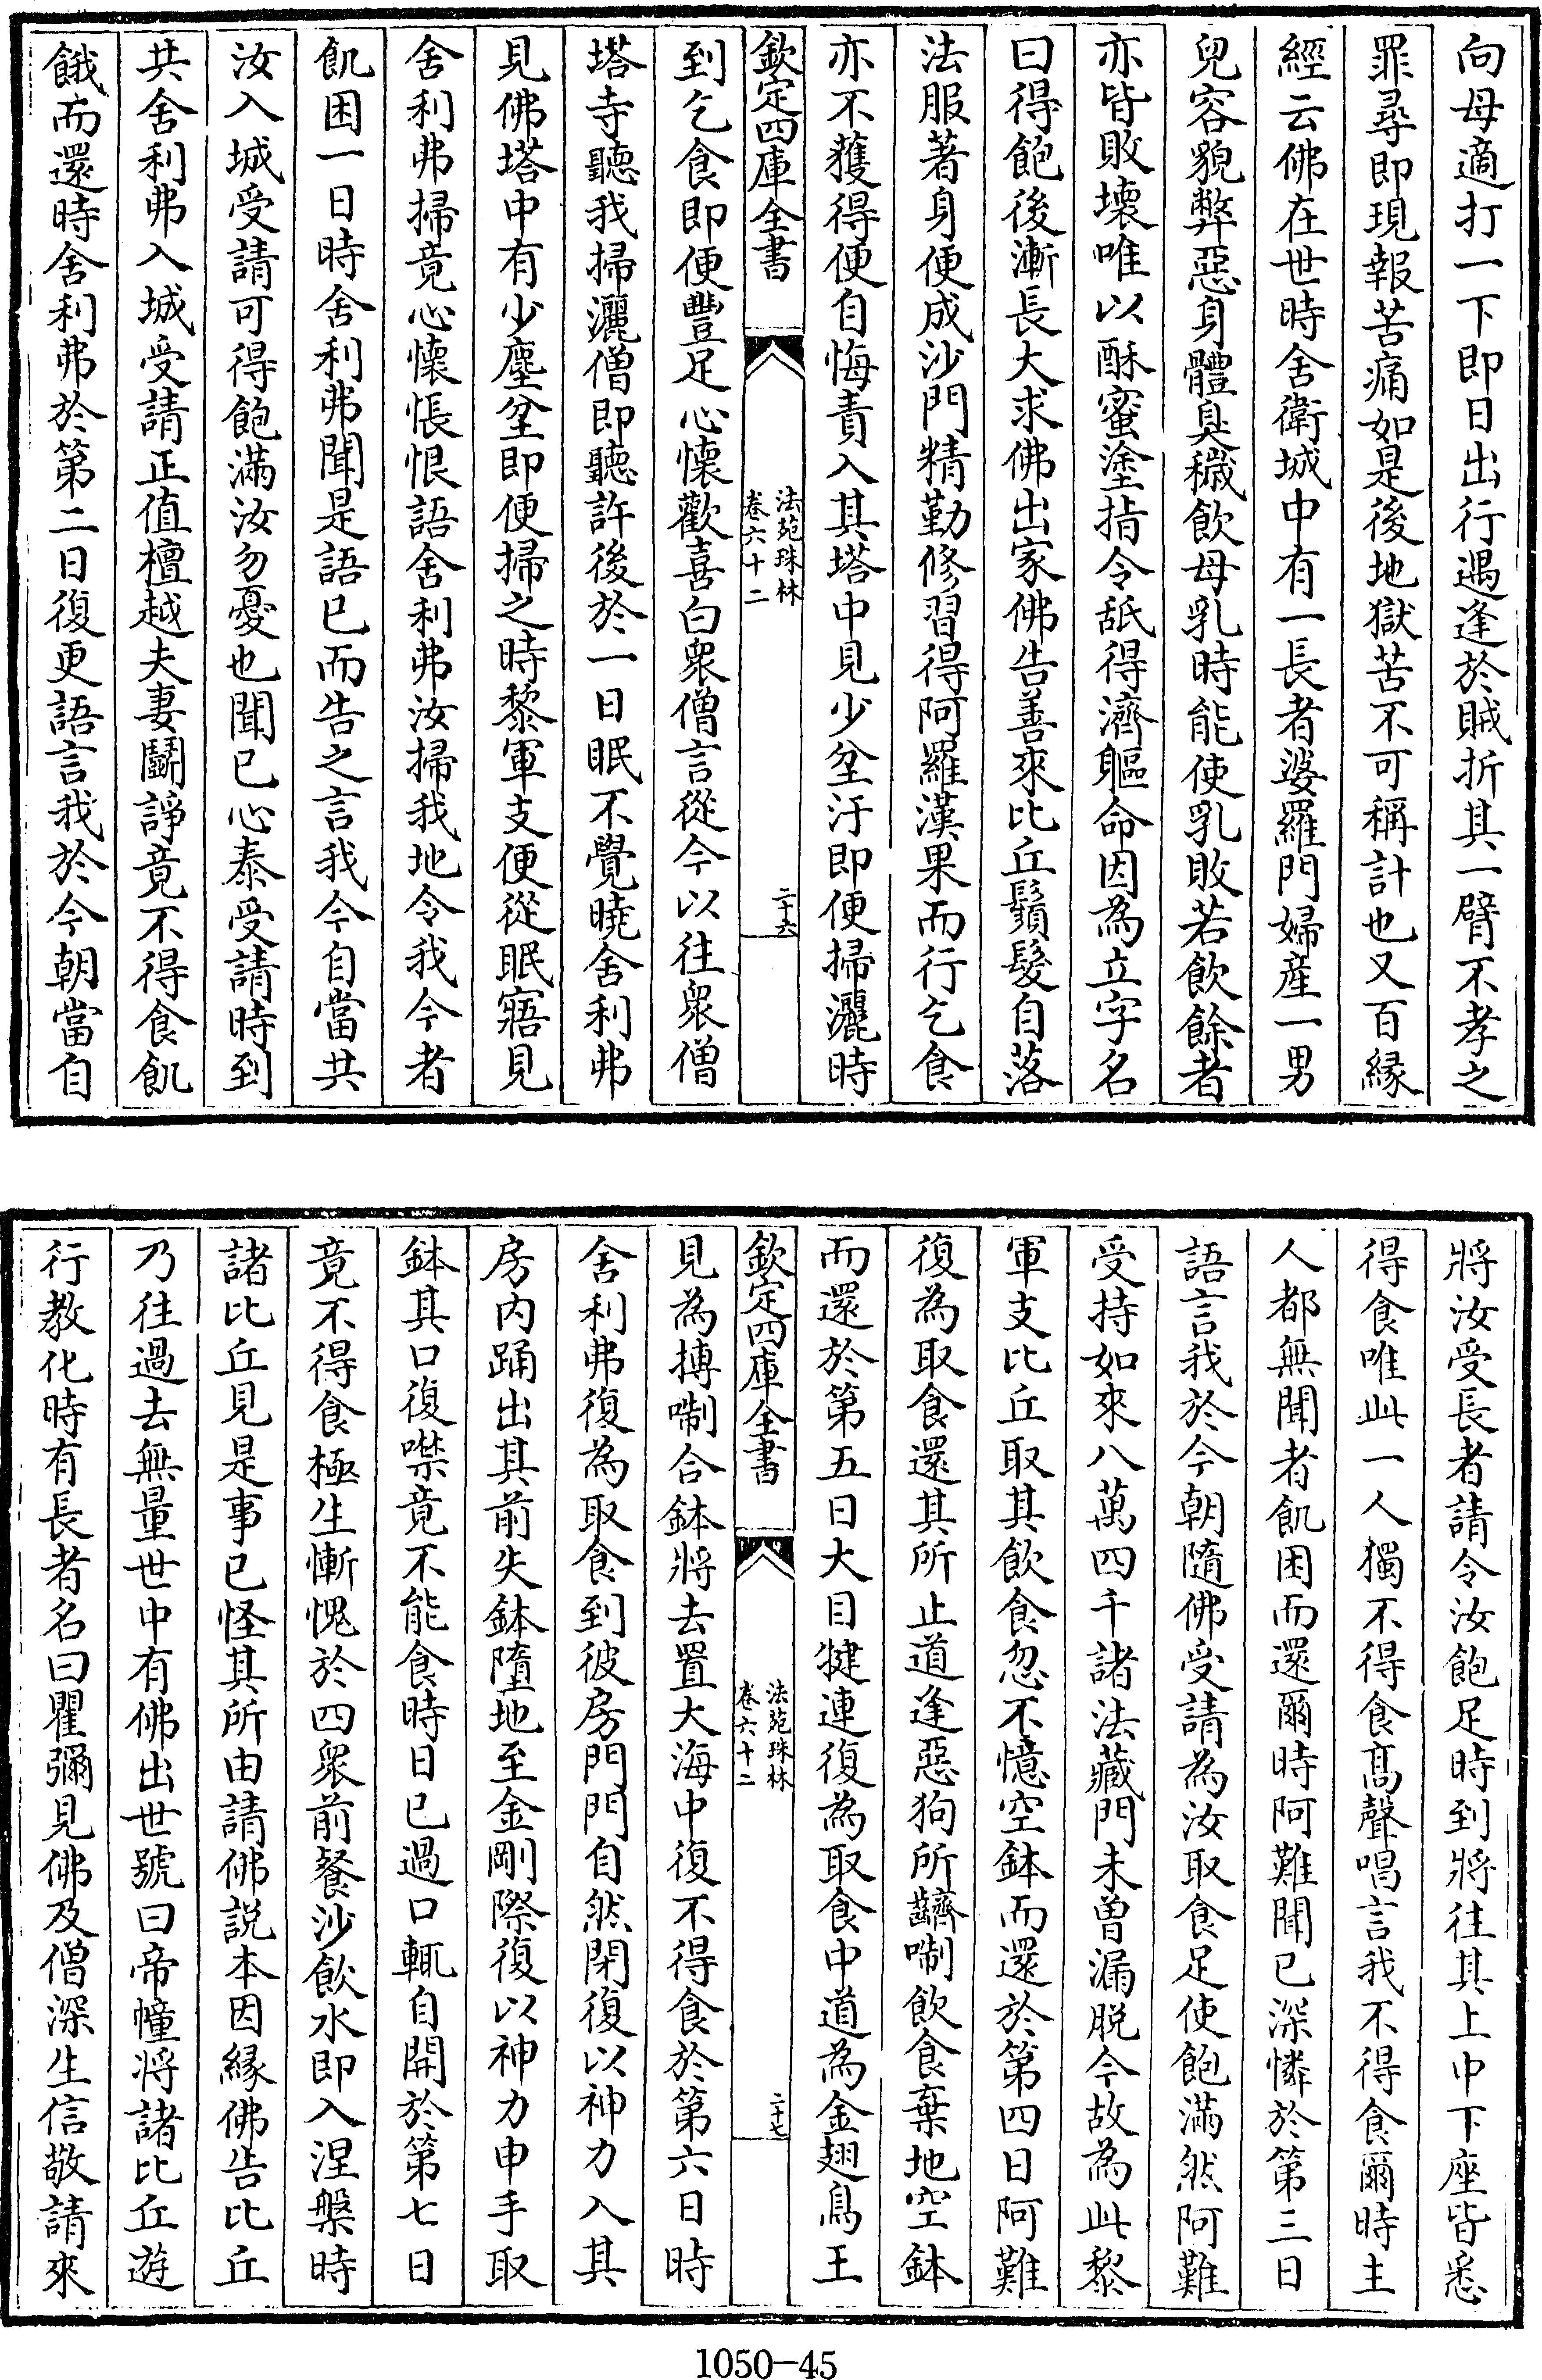 向母適打一下即日出行遇逢於賊折其一臂不孝之
罪尋即現報苦痛如是後地獄苦不可稱計也又百縁
經云佛在世時舍衛城中有一長者婆羅門婦産一男
兒容貌弊惡身體臭穢飲母乳時能使乳敗若飲餘者
亦皆敗壞唯以酥蜜塗指令舐得濟軀命因為立字名
曰得飽後漸長大求佛出家佛告善來比丘鬚髮自落
法服著身便成沙門精勤修習得阿羅漢果而行乞食
亦不獲得便自悔責入其塔中見少坌汙即便掃灑時
欽定四庫全書
法苑珠林
卷六十二
二十六
到乞食即便豐足心懷歡喜白衆僧言從今以往衆僧
塔寺聽我掃灑僧即聽許後於一日眠不覺曉舍利弗
見佛塔中有少塵坌即便掃之時黎軍支便從眠寤見
舍利弗掃竟心懷悵恨語舍利弗汝掃我地令我今者
飢困一日時舍利弗聞是語已而告之言我今自當共
汝入城受請可得飽滿汝勿憂也聞已心泰受請時到
共舍利弗入城受請正值檀越夫妻鬭諍竟不得食飢
餓而還時舍利弗於第二日復更語言我於今朝當自
將汝受長者請令汝飽足時到將往其上中下座皆悉
得食唯此一人獨不得食髙聲唱言我不得食爾時主
人都無聞者飢困而還爾時阿難聞已深憐於第三日
語言我於今朝隨佛受請為汝取食足使飽滿然阿難
受持如來八萬四千諸法藏門未曽漏脱今故為此黎
軍支比丘取其飲食忽不憶空鉢而還於第四日阿難
復為取食還其所止道逢惡狗所齩啣飲食棄地空鉢
而還於第五日大目犍連復為取食中道為金翅鳥王
欽定四庫全書
法苑珠林
卷六十二
二十七
見為搏啣合鉢將去置大海中復不得食於第六日時
舍利弗復為取食到彼房門門自然閉復以神力入其
房内踊出其前失鉢墮地至金剛際復以神力申手取
鉢其口復噤竟不能食時日已過口輒自開於第七日
竟不得食極生慚愧於四衆前餐沙飲水即入涅槃時
諸比丘見是事已怪其所由請佛説本因縁佛告比丘
乃往過去無量世中有佛出世號曰帝幢將諸比丘遊
行教化時有長者名曰瞿彌見佛及僧深生信敬請來
1050-45